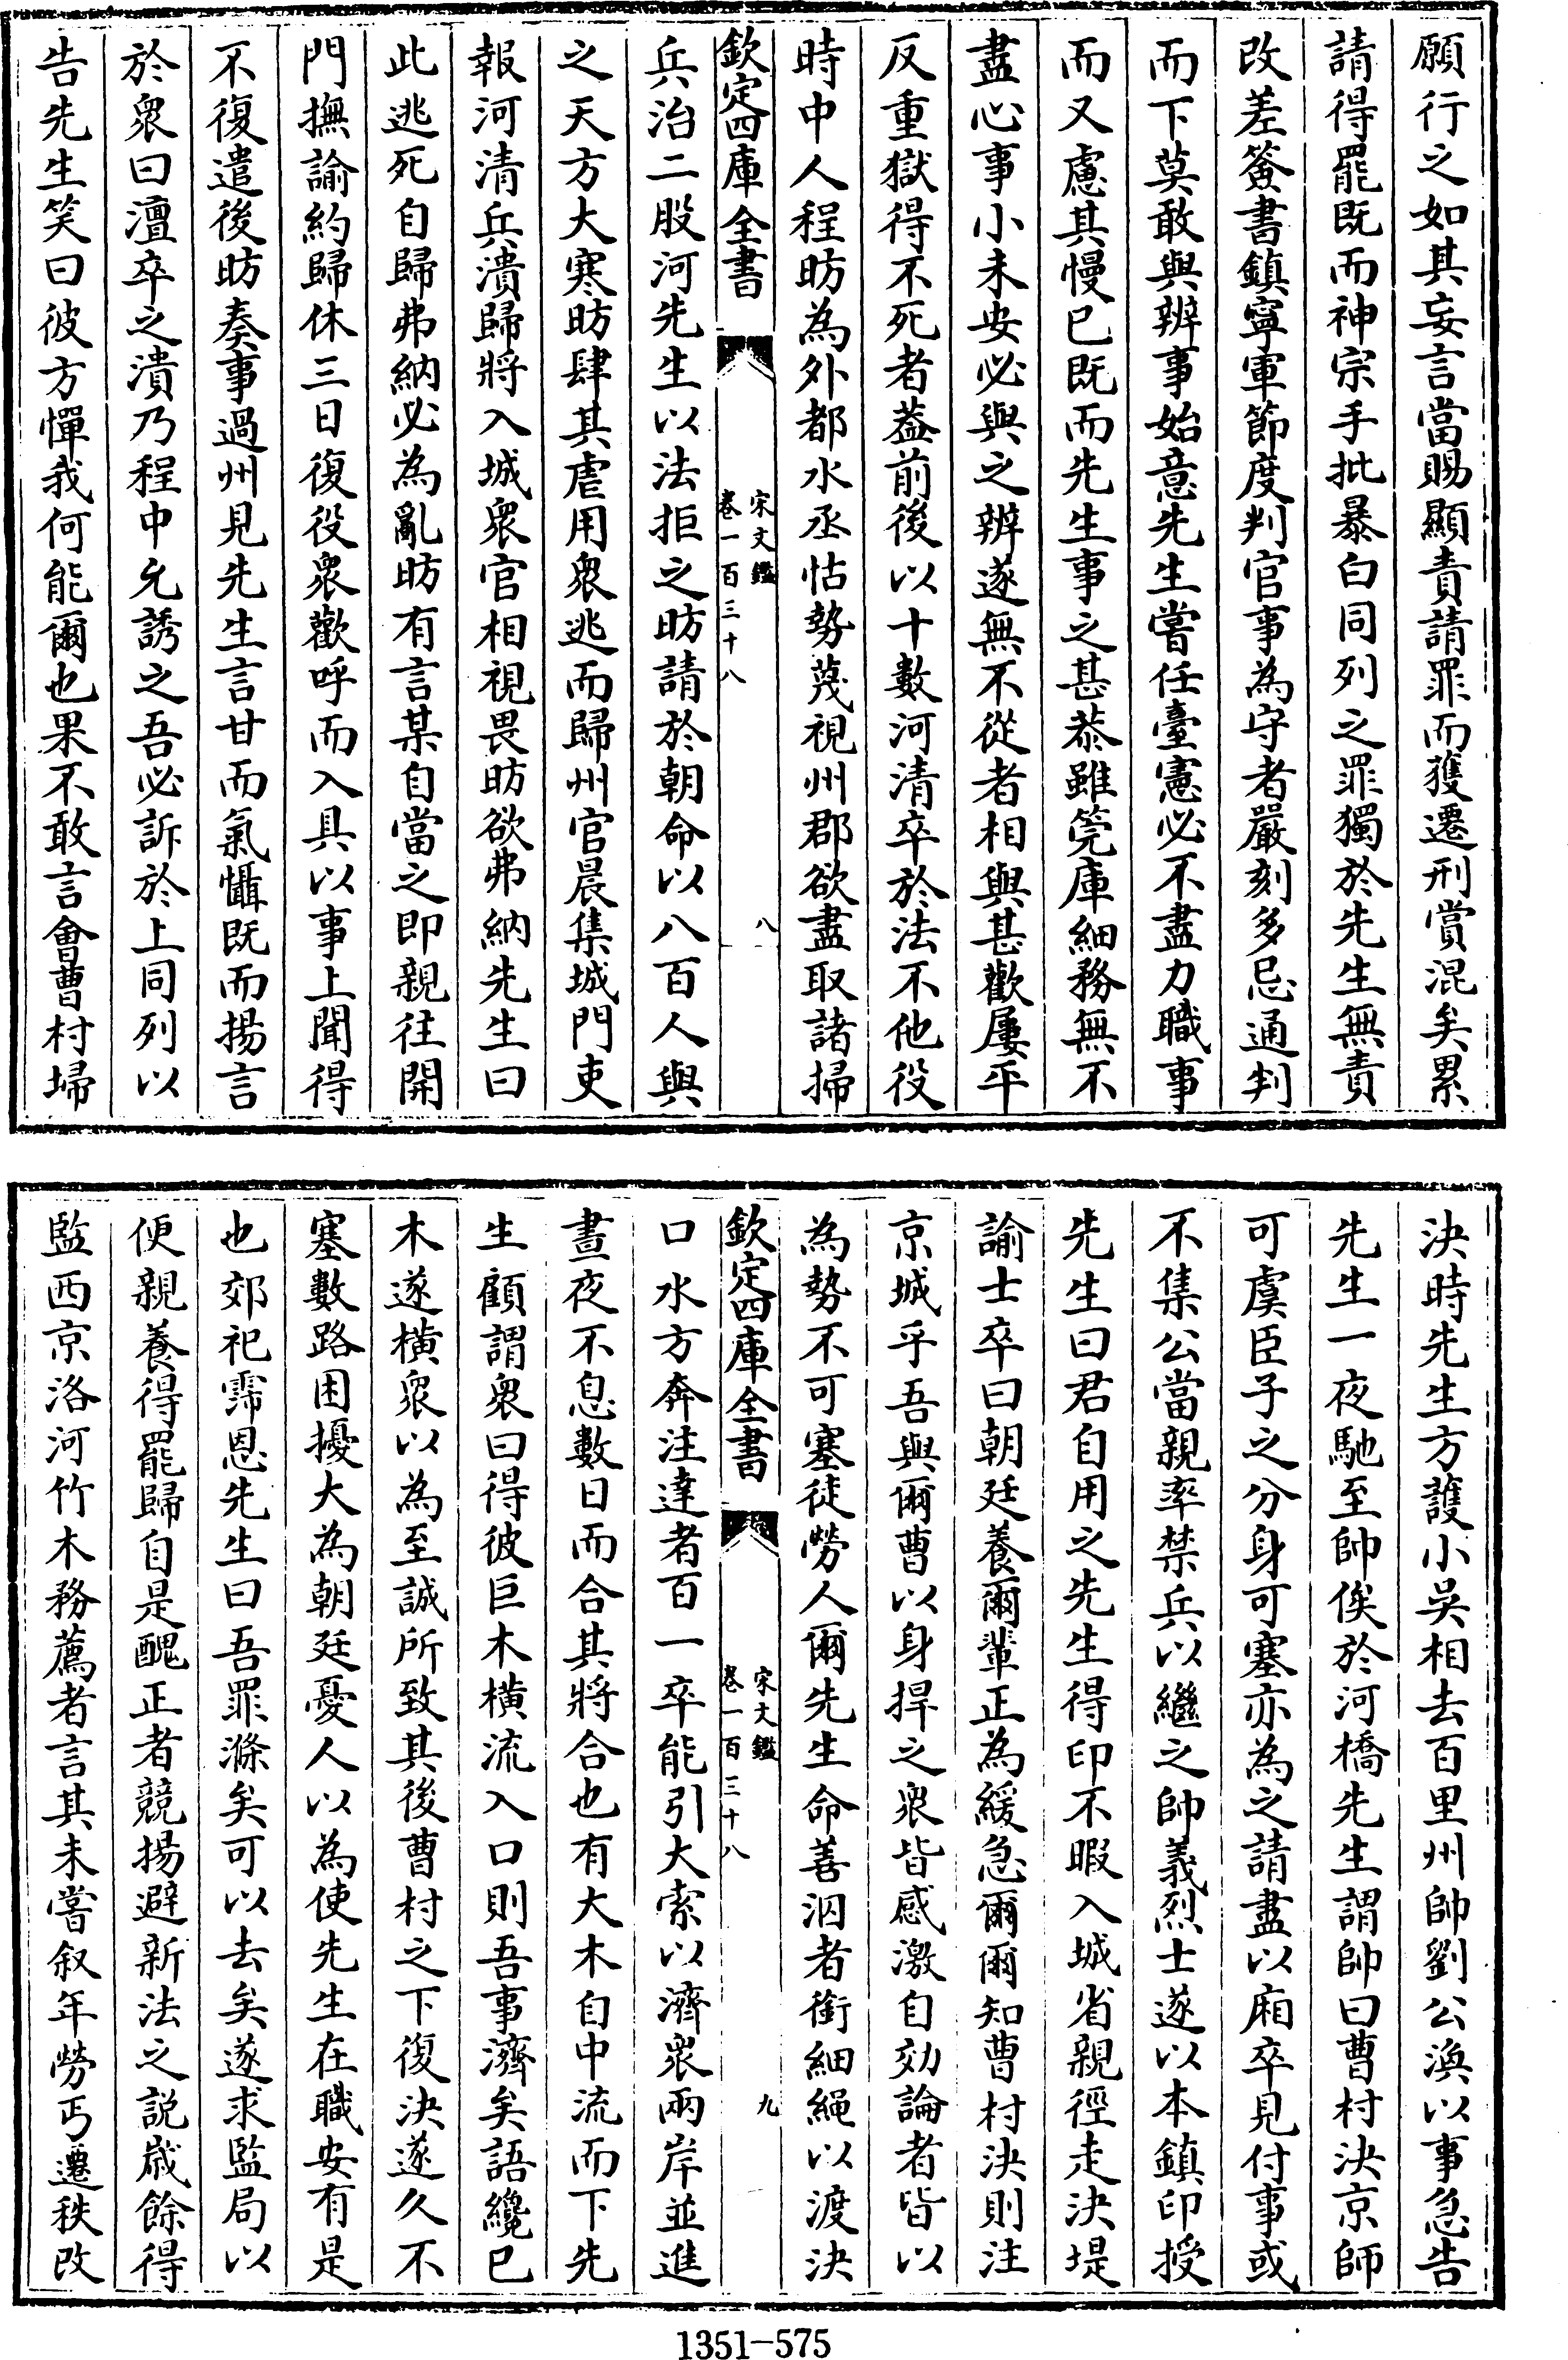 願行之如其妄言當賜顯責請罪而獲遷刑賞混矣累
請得罷既而神宗手批暴白同列之罪獨於先生無責
改差簽書鎮寧軍節度判官事為守者嚴刻多忌通判
而下莫敢與辨事始意先生嘗任臺憲必不盡力職事
而又慮其慢已既而先生事之甚恭雖筦庫細務無不
盡心事小未安必與之辨遂無不從者相與甚歡屢平
反重獄得不死者葢前後以十數河清卒於法不他役
時中人程昉為外都水丞怙勢蔑視州郡欲盡取諸掃
欽定四庫全書
宋文鑑
卷一百三十八
八
兵治二股河先生以法拒之昉請於朝命以八百人與
之天方大寒昉肆其虐用衆逃而歸州官晨集城門吏
報河清兵潰歸將入城衆官相視畏昉欲弗納先生曰
此逃死自歸弗納必為亂昉有言某自當之即親往開
門撫諭約歸休三日復役衆歡呼而入具以事上聞得
不復遣後昉奏事過州見先生言甘而氣懾既而揚言
於衆曰澶卒之潰乃程中允誘之吾必訴於上同列以
告先生笑曰彼方憚我何能爾也果不敢言會曹村埽
決時先生方護小吳相去百里州帥劉公渙以事急告
先生一夜馳至帥俟於河橋先生謂帥曰曹村決京師
可虞臣子之分身可塞亦為之請盡以廂卒見付事或
不集公當親率禁兵以繼之帥義烈士遂以本鎮印授
先生曰君自用之先生得印不暇入城省親徑走決堤
諭士卒曰朝廷養爾輩正為緩急爾爾知曹村決則注
京城乎吾與爾曹以身捍之衆皆感激自効論者皆以
為勢不可塞徒勞人爾先生命善泅者銜細繩以渡決
欽定四庫全書
宋文鑑
卷一百三十八
九
口水方奔注達者百一卒能引大索以濟衆兩岸並進
晝夜不息數日而合其將合也有大木自中流而下先
生顧謂衆曰得彼巨木橫流入口則吾事濟矣語纔已
木遂橫衆以為至誠所致其後曹村之下復決遂久不
塞數路困擾大為朝廷憂人以為使先生在職安有是
也郊祀霈恩先生曰吾罪滌矣可以去矣遂求監局以
便親養得罷歸自是醜正者競揚避新法之說歲餘得
監西京洛河竹木務薦者言其未嘗叙年勞丐遷秩改
1351-575